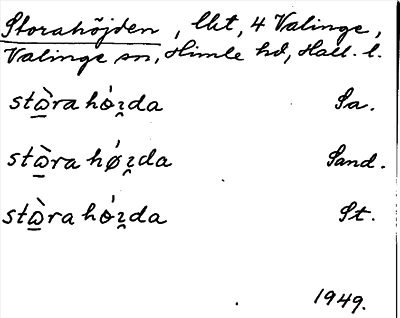 Storahöjden, lht, 4 Valinge,
Valinge sn, Himle hd, Hall. l.
stὼ̲ra hǿɪ̯da Sa.
stὼ̲ra hǿɪ̯da Sand.
stὼ̲ra hǿɪ̯da St.
1949.